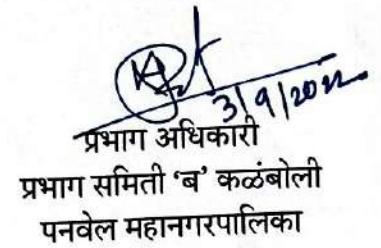 3/9/2022
प्रभाग अधिकारी
प्रभाग समिती ‘ब’ कळंबोली
पनवेल महानगरपालिका